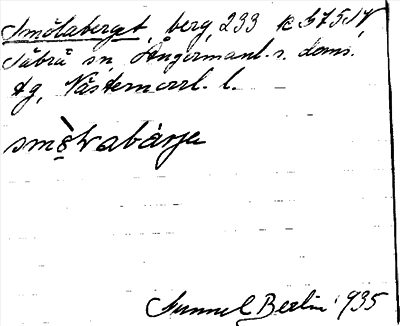 Smölaberget, berg, 233 k 6757,
Säbrå sn, Ångermanl. s. doms.
tg, Västernorrl. l.
smòlabárje
Sunnel Berlin 1935